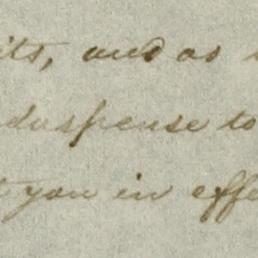 its, and as
suspense to
you in effe